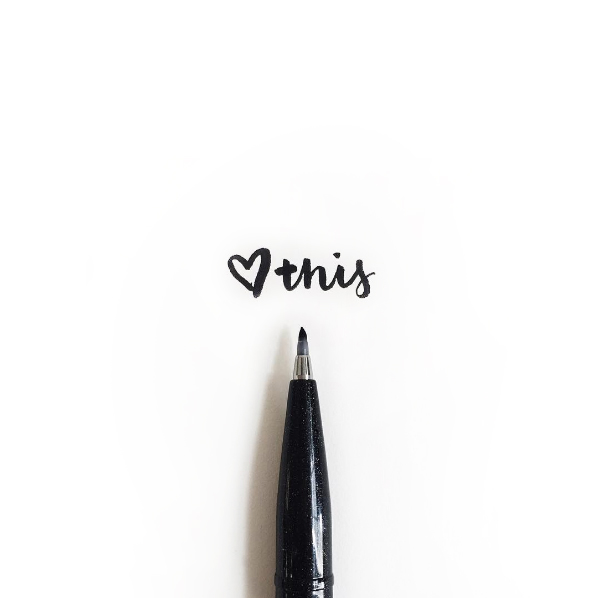 ♡this